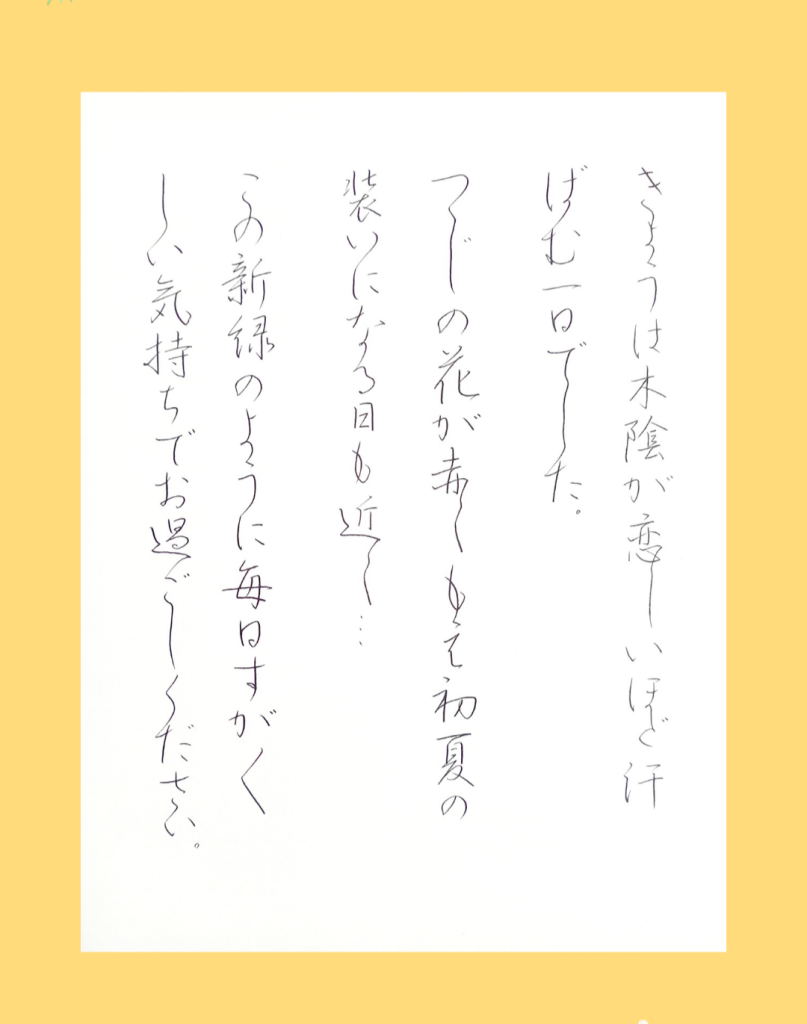 きょうは木陰が恋しいほど汗
ばむ一日でした。
つつじの花が赤くもえ初夏の
装いになる日も近く…
この新緑のように毎日すがく
しい気持ちでお過ごしください。